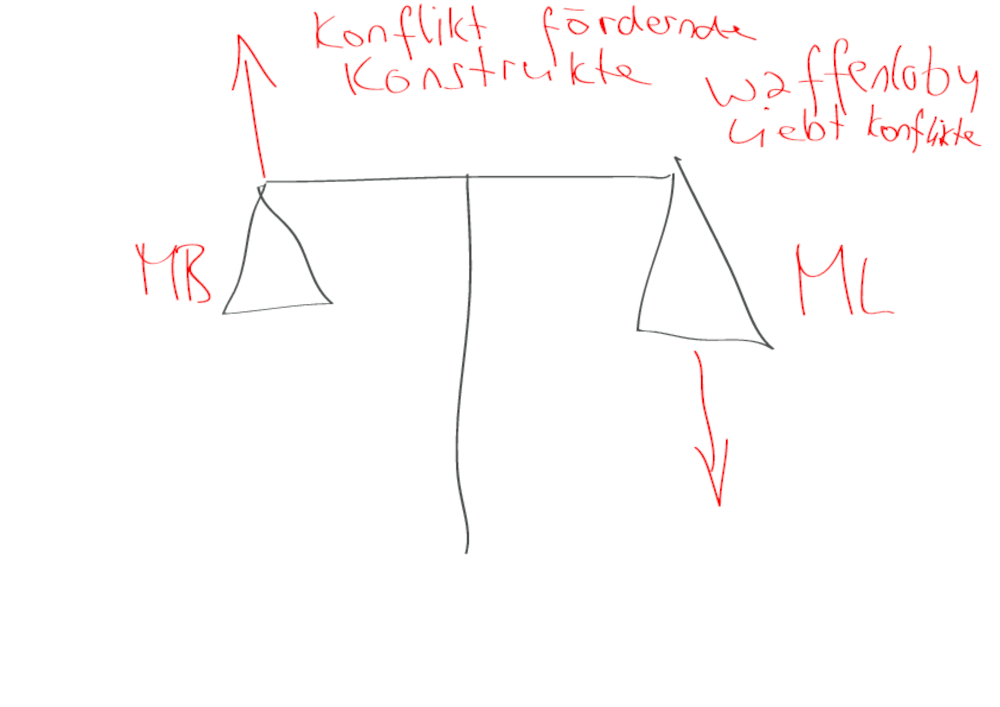 Konflikt fördernde
Konstrukte
Waffenloby
liebt Konflikte
MB
ML